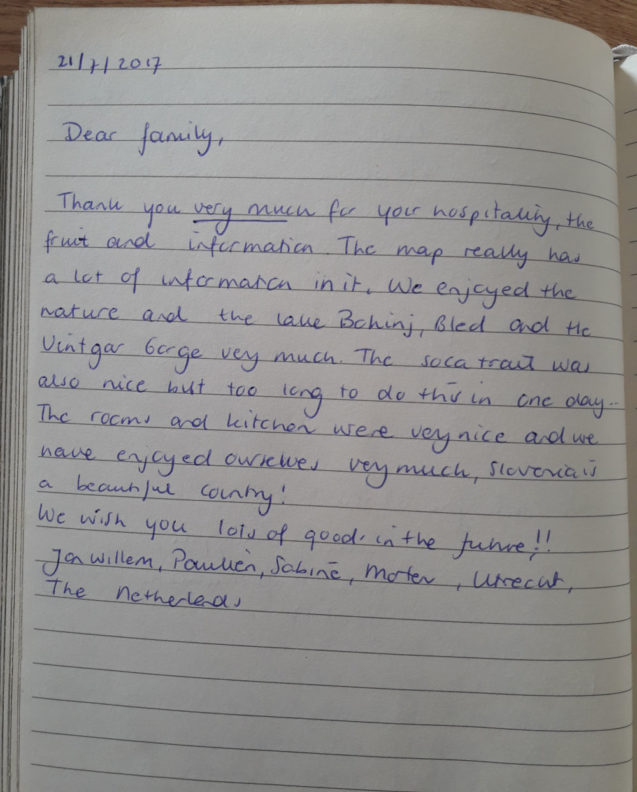 21/7/2017
Dear family,
Thank you very much for your hospitality, the
fruit and information. The map really has
a lot of information in it. We enjoyed the
nature and the lake Bohinj, Bled and the
Vintgar Gorge very much. The soca trail was
also nice but too long to do this in one day..
The rooms and kitchen were very nice and we
have enjoyed ourselves very much, Slovenia is
a beautiful country!
We wish you lots of good in the future!!
Jan willem, Paulien, Sabine, , Utrecht,
The Netherlands